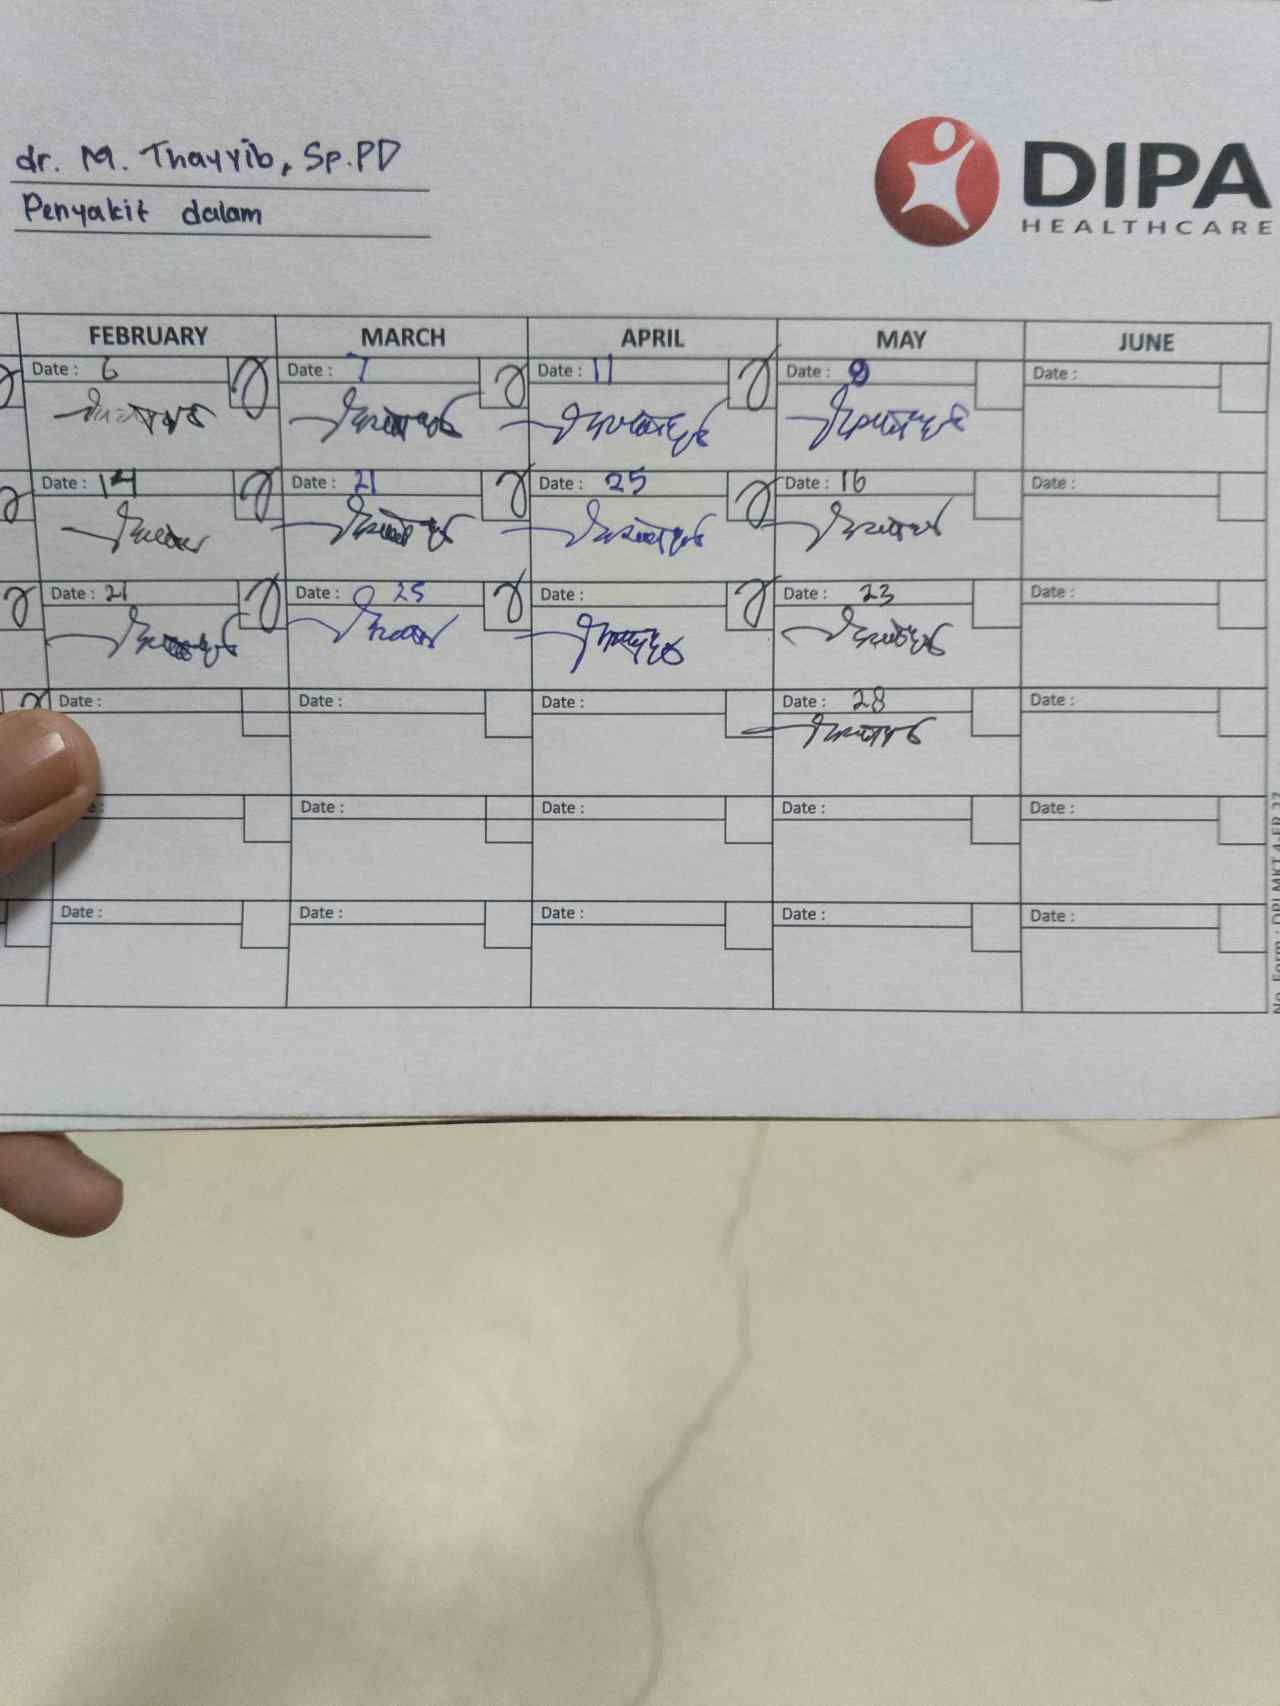 dr. M. Thayyib, Sp.PD
Penyakit dalam
DIPA
HEALTHCARE
FEBRUARY MARCH APRIL MAY JUNE
Date : 6 Date : 7 Date : 11 Date : 9 Date :
Date : 14 Date : 21 Date : 25 Date : 16 Date :
Date : 21 Date : 25 Date : Date : 23 Date :
Date : Date : Date : Date : 28 Date :
Date : Date : Date : Date :
Date : Date : Date : Date : Date :
No. Form : DPI.MKT.4-FR.27